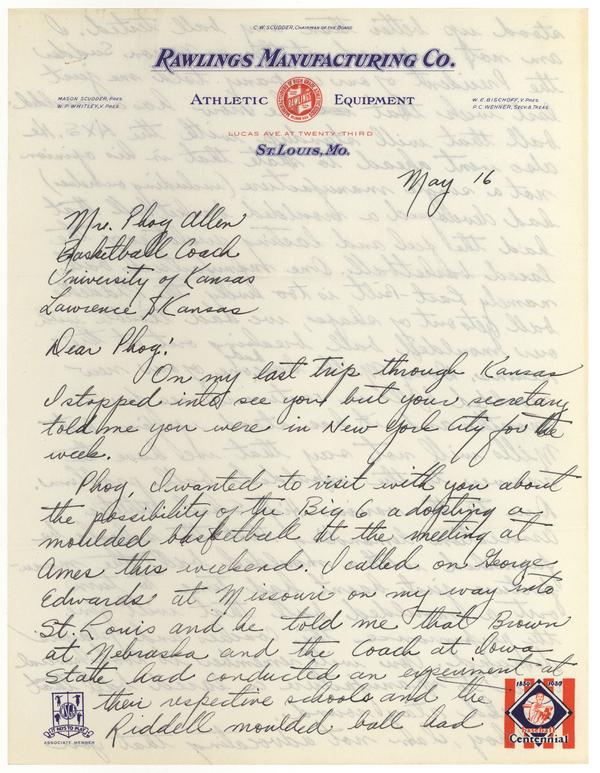 C.W. SCUDDER, CHAIRMAN OF THE BOARD
RAWLINGS MANUFACTURING CO.
MASON SCUDDER, PRES.
W.P. WHITLEY, V. PRES.
ATHLETIC RAWLINGS EQUIPMENT
W.E. BISCHOFF, V. PRES.
P.C. WENNER, SECY. & TREAS.
LUCAS AVE. AT TWENTY-THIRD
ST. LOUIS, MO.
May 16
Mr. Phog Allen
Basketball Coach
University of Kansas
Lawrence Kansas
Dear Phog:
On my last trip through Kansas
I stopped into see you but your secretary
told me you were in New York City for the
week.
Phog, I wanted to visit with you about
the possibility of the Big 6 adopting a
moulded basketball at the meeting at
Ames this weekend. I called on George
Edwards at Missouri on my way into
St. Louis and he told me that Brown
at Nebraska and the Coach at Iowa
State had conducted an experiment at
their respective schools and the
Riddell moulded ball had
IT PAYS TO PLAY
ASSOCIATE MEMBER
1839 1939
BASEBALL
Centennial